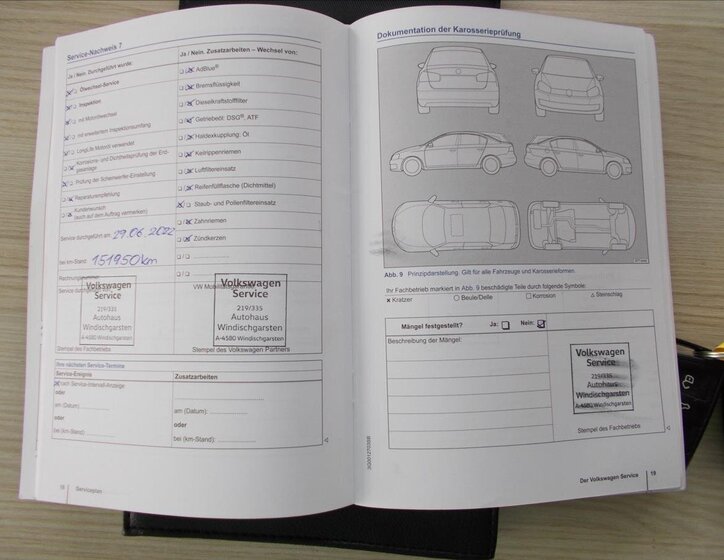 Service-Nachweis 7
Ja / Nein. Durchgeführt wurde:
Ölwechsel-Service
Inspektion
mit Motorölwechsel
mit erweitertem Inspektionsumfang
LongLife Motoröl verwendet
Korrosions- und Dichtheitsprüfung der Erd-
gasanlage
Prüfung der Scheinwerfer-Einstellung
Reparaturempfehlung
Kundenwunsch
(auch auf dem Auftrag vermerken)
Service durchgeführt am: 29.06.2022
bei km-Stand: 151950km
Rechnungsnummer:
Service durch
Volkswagen
Service
219/335
Autohaus
Windischgarsten
A-4580 Windischgarsten
Stempel des Fachbetriebs
Ja / Nein. Zusatzarbeiten – Wechsel von:
AdBlue®
Bremsflüssigkeit
Dieselkraftstofffilter
Getriebeöl: DSG®, ATF
Haldexkupplung: Öl
Keilrippenriemen
Luftfiltereinsatz
Reifenfüllflasche (Dichtmittel)
Staub- und Pollenfiltereinsatz
Zahnriemen
Zündkerzen
VW Mobil
Volkswagen
Service
219/335
Autohaus
Windischgarsten
A-4580 Windischgarsten
Stempel des Volkswagen Partners
Ihre nächsten Service-Termine
Service-Ereignis
nach Service-Intervall-Anzeige
oder
am (Datum)
oder
bei (km-Stand):
Zusatzarbeiten
am (Datum):
oder
bei (km-Stand):
18 Serviceplan
Dokumentation der Karosserieprüfung
Abb. 9 Prinzipdarstellung. Gilt für alle Fahrzeuge und Karosserieformen.
Ihr Fachbetrieb markiert in Abb. 9 beschädigte Teile durch folgende Symbole:
x Kratzer ○ Beule/Delle □ Korrosion △ Steinschlag
Mängel festgestellt? Ja: Nein:
Beschreibung der Mängel:
Volkswagen
Service
219/335
Autohaus
Windischgarsten
A-4580 Windischgarsten
Stempel des Fachbetriebs
Der Volkswagen Service 19